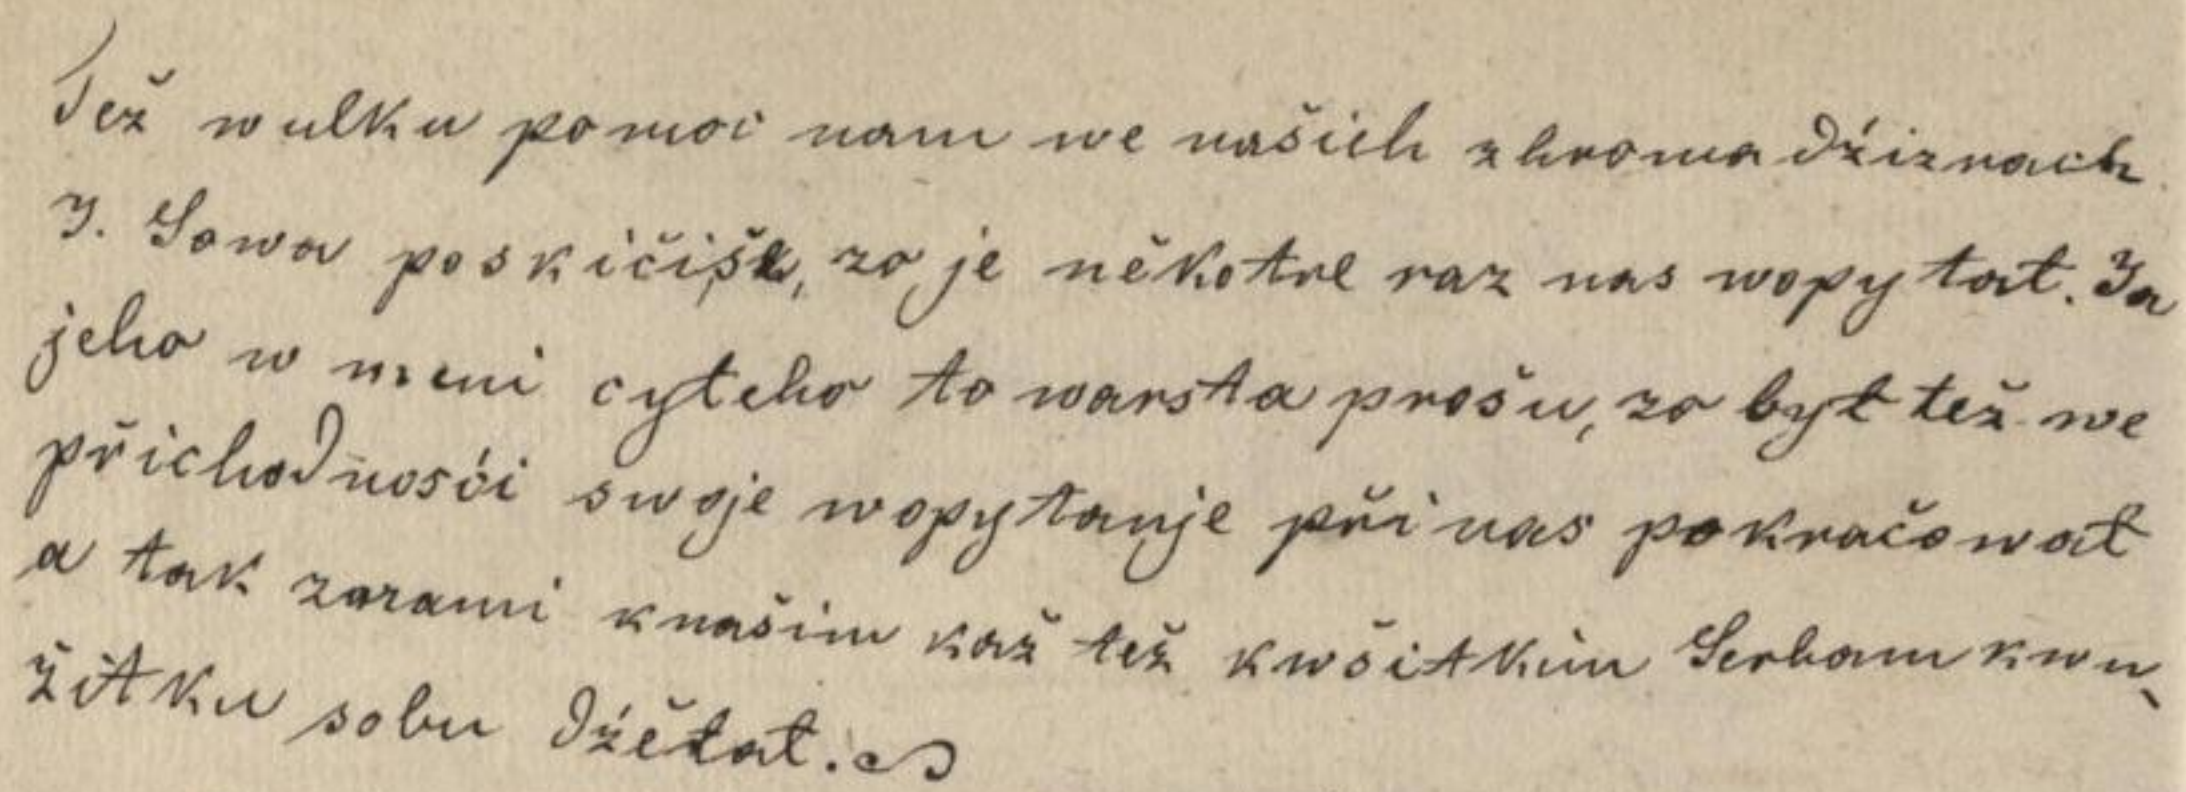 Tež wulku pomoc nam we našich zhromadźiznach
J. Sowa poskićiše, zo je někotre raz nas wopytał. Ja
jeho w meni cyłeho towarsta prošu, zo był tež we
přichodnosći swoje wopytanje při nas pokračował
a tak zarami k našim kaž tež k wšitkim Serbam k wu-
žitku sobu dźěłał.